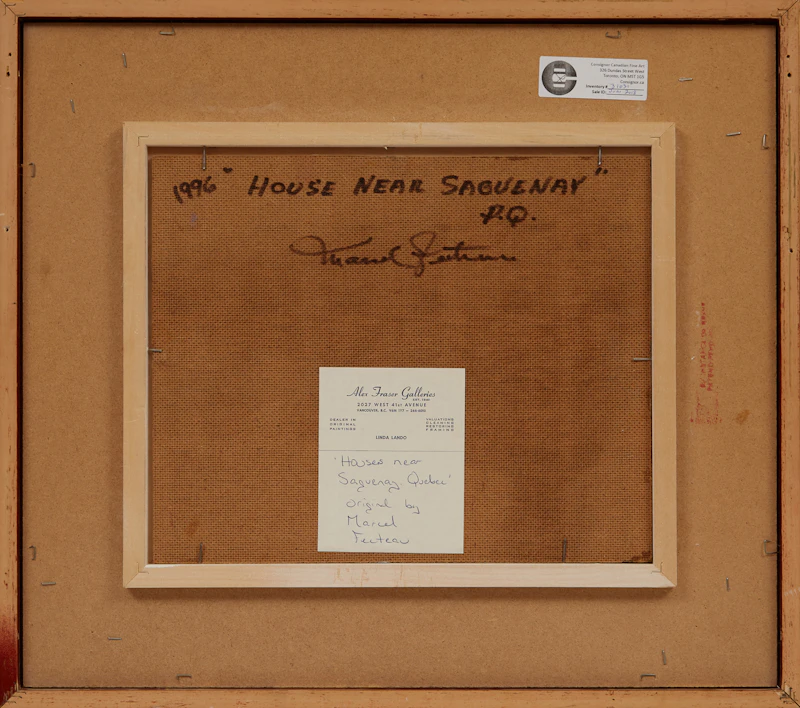 Consignor Canadian Fine Art
326 Dundas Street West
Toronto, ON M5T 1G5
Consignor.ca
Inventory #
Sale ID:
1996 "HOUSE NEAR SAGUENAY"
P.Q.
Marcel Fecteau
Alex Fraser Galleries
2027 WEST 41st AVENUE
VANCOUVER, B.C.
DEALER IN
ORIGINAL
PAINTINGS
VALUATIONS
CLEANING
RESTORING
FRAMING
LINDA LANDO
'Houses near
Saguenay. Quebec'
original by
Marcel
Fecteau